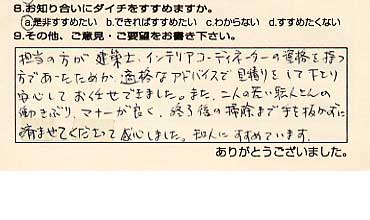 8.お知り合いにダイチをすすめますか。
a.是非すすめたい b.できればすすめたい c.わからない d.すすめたくない
9.その他、ご意見・ご要望をお書き下さい。
担当の方が建築士、インテリアコーディネーターの資格を持つ
方であったためか、適格なアドバイスで見積りをして下さり
安心してお任せできました。また、二人の若い職人さんの
働きぶり、マナーが良く、終了後の掃除まで手を抜かずに
済ませてくださって感心しました。知人にすすめています。
ありがとうございました。